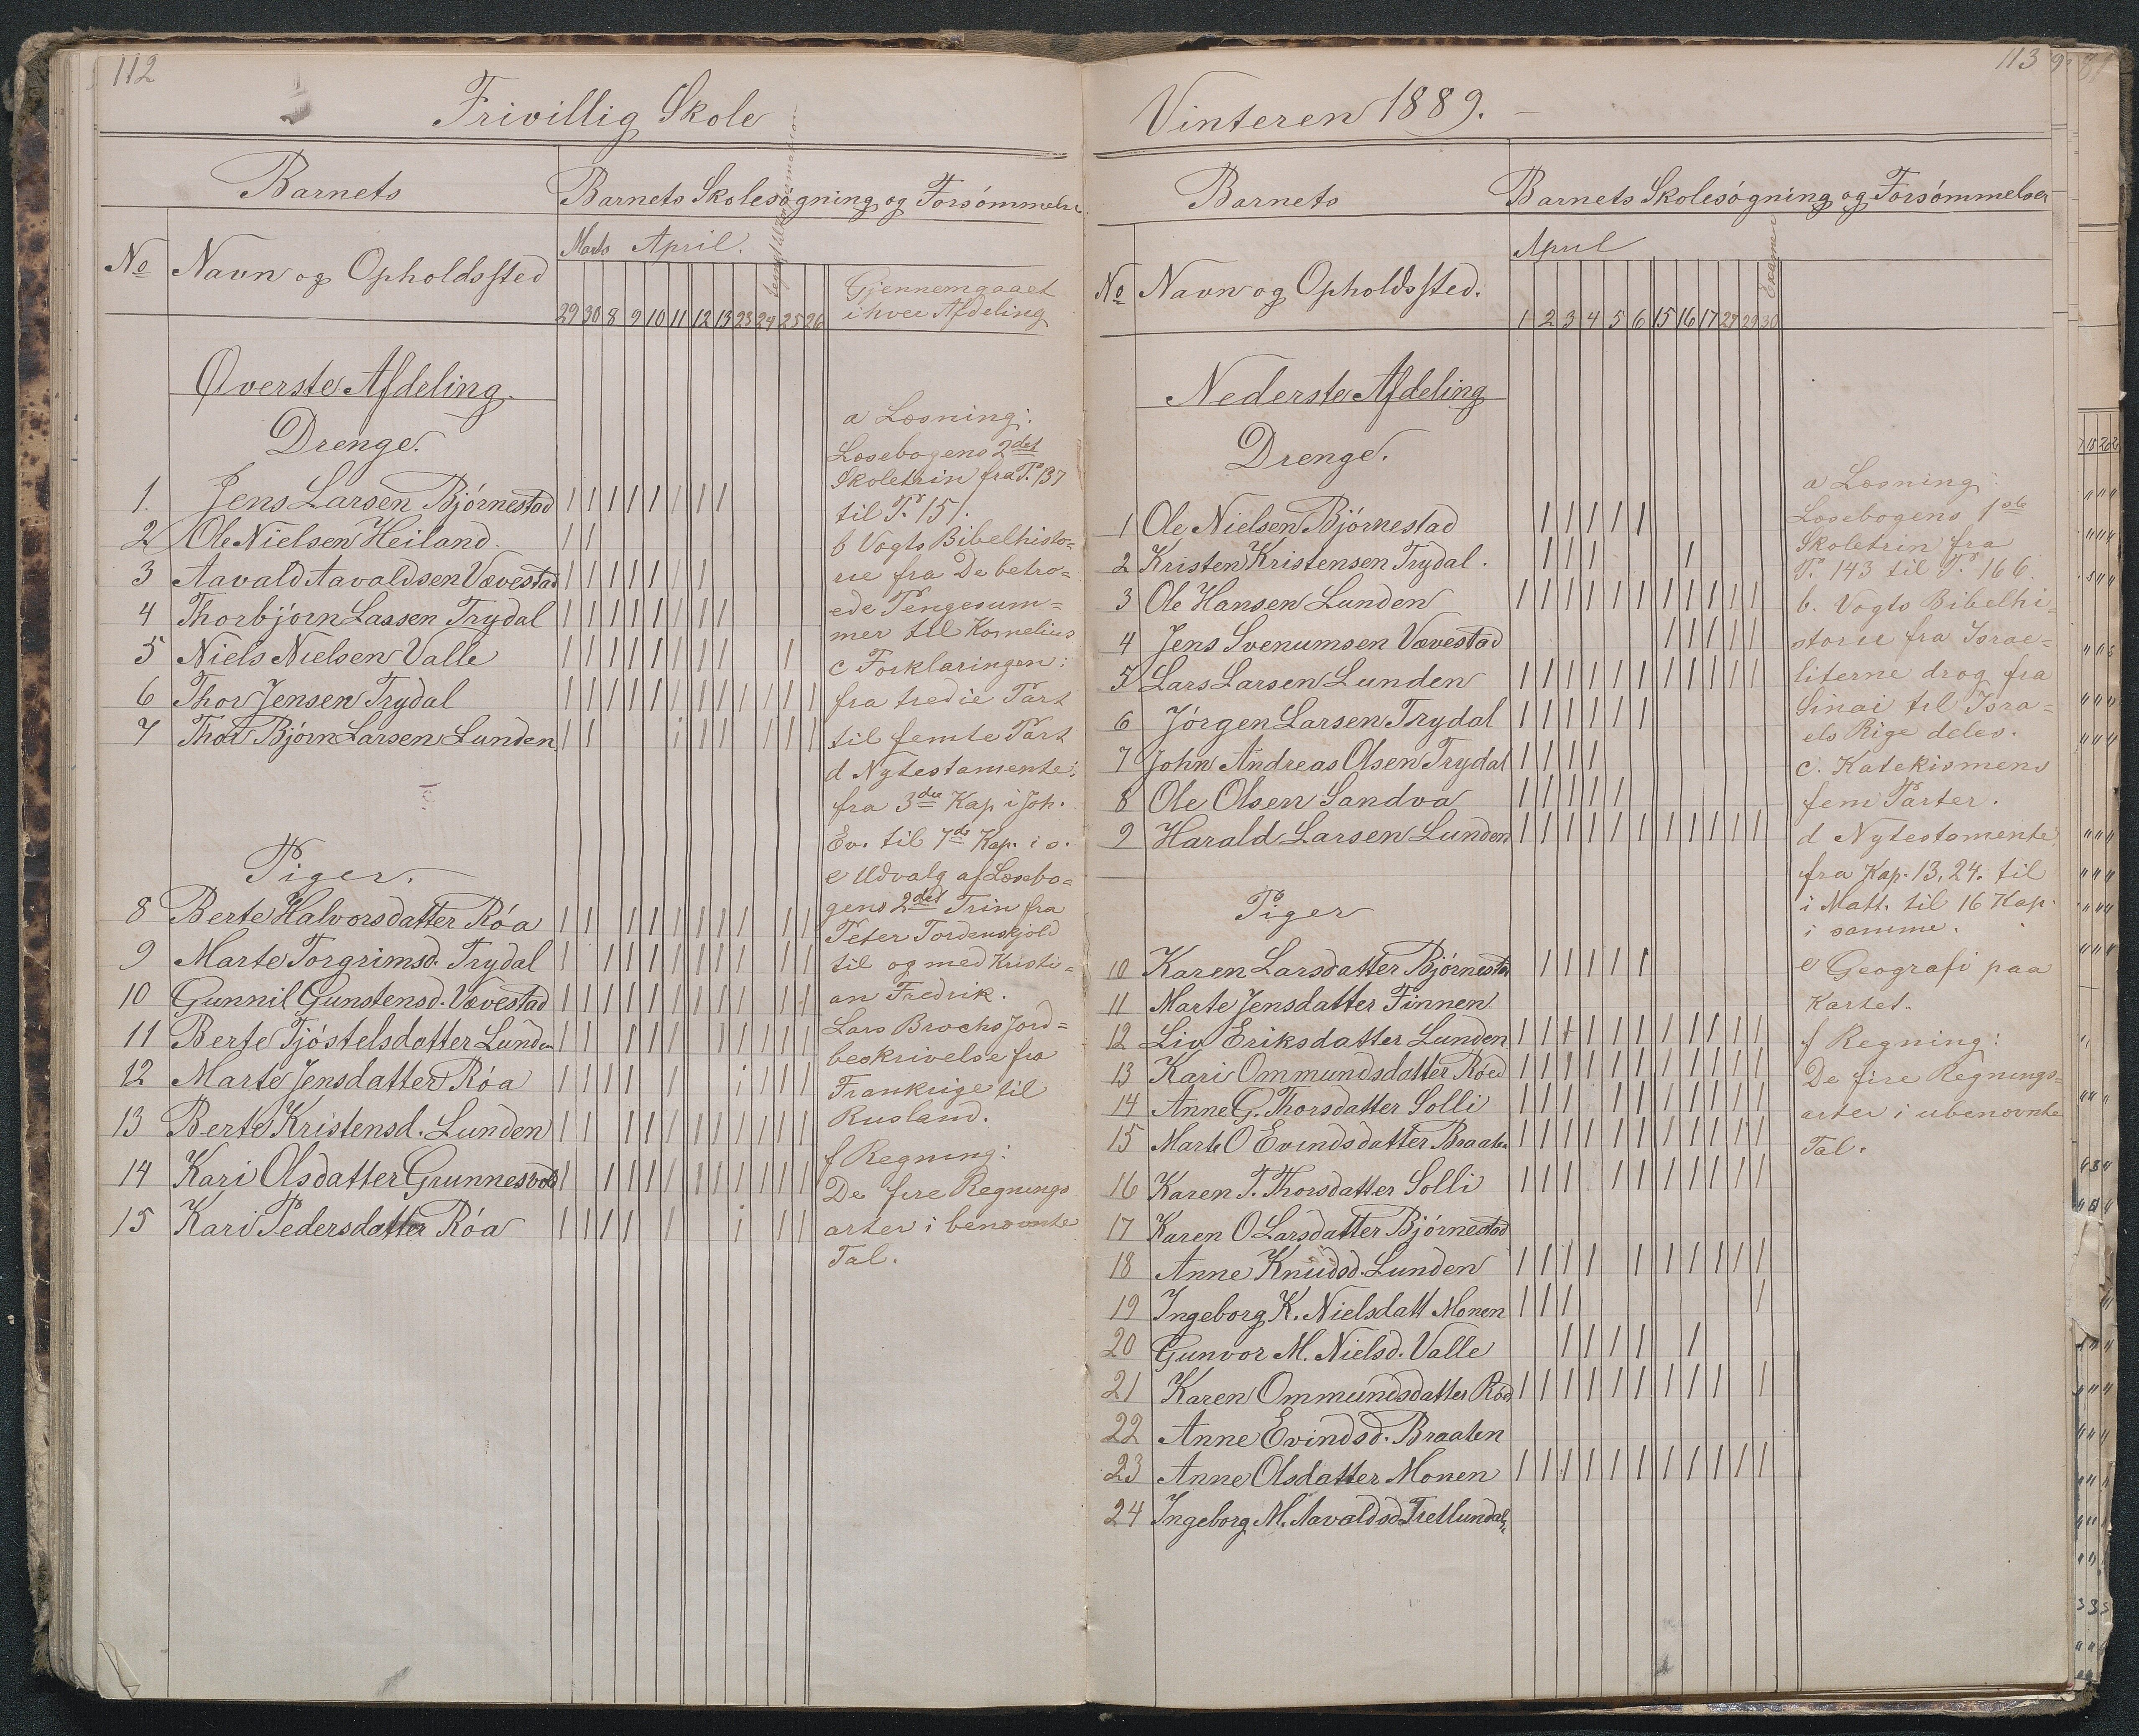 112
Frivillig Skole
Barnets
Barnets Skolesøgning og Forsømmelse
No
Navn og Opholdssted
Marts April.
29 30 8 9 10 11 12 13 23 24 25 26
Gjennemgaaet
i hver Afdeling
Øverste Afdeling.
Drenge.
1. Jens Larsen Bjørnestad
2 Ole Nielsen Heiland.
3 Aavald Aavaldsen Vævestad
4 Thorbjørn Lassen Trydal
5 Niels Nielsen Valle
6 Thor Jensen Trydal
7 Thor Bjørn Larsen Lunden
Piger.
8 Berte Halvorsdatter Røa
9 Marte Torgrimsd. Trydal
10 Gunnil Gunstensd. Vævestad
11 Berte Tjøstelsdatter Lunden
12 Marte Jensdatter Røa
13 Berte Kristensd. Lunden
14 Kari Olsdatter Grunnesvold
15 Kari Pedersdatter Røa
a Læsning:
Læsebogens 2det
Skoletrin fra P. 137
til P. 151.
b Vogts Bibelhisto=
rie fra De betro=
ede Pengesum=
mer til Kornelius
c Forklaringen:
fra tredie Part
til femte Part
d Nytestamente:
fra 3die Kap i Joh.
Ev. til 7de Kap. i s.
e Udvalg af Læsebo=
gens 2det Trin fra
Peter Tordenskjold
til og med Kristi=
an Fredrik.
Lars Brochs Jord=
beskrivelse fra
Frankrige til
Rusland.
f Regning:
De fire Regnings
arter i benævnte
Tal.
113
Vinteren 1889.
Barnets
Barnets Skolesøgning og Forsømmelser
No
Navn og Opholdssted.
April
Examen
1 2 3 4 5 6 15 16 17 27 29 30
Nederste Afdeling
Drenge.
1 Ole Nielsen Bjørnestad
2 Kristen Kristensen Trydal.
3 Ole Hansen Lunden
4 Jens Svenumsen Vævestad
5 Lars Larsen Lunden
6 Jørgen Larsen Trydal
7 John Andreas Olsen Trydal
8 Ole Olsen Sandva
9 Harald Larsen Lunden
Piger
10 Karen Larsdatter Bjørnestad
11 Marte Jensdatter Finnen
12 Liv Eriksdatter Lunden
13 Kari Ommundsdatter Røed
14 Anne G. Thorsdatter Solli
15 Marte O Evindsdatter Braaten
16 Karen T. Thorsdatter Solli
17 Karen O Larsdatter Bjørnestad
18 Anne Knudsd. Lunden
19 Ingeborg K. Nielsdatt Monen
20 Gunvor M. Nielsd. Valle
21 Karen Ommundsdatter Rød
22 Anne Evindsd. Braaten
23 Anne Olsdatter Monen
24 Ingeborg M. Aavaldsd
a Læsning:
Læsebogens 1ste
Skoletrin fra
P. 143 til P. 166.
b. Vogts Bibelhi=
storie fra Israe=
literne drog fra
Sinai til Isra=
els Rige deles.
c. Katekismens
fem Parter.
d Nytestamente:
fra Kap. 13, 24. til
i Matt. til 16 Kap.
i samme.
e Geografi paa
Kartet.
f Regning:
De fire Regnings=
arter i ubenævnte
Tal.